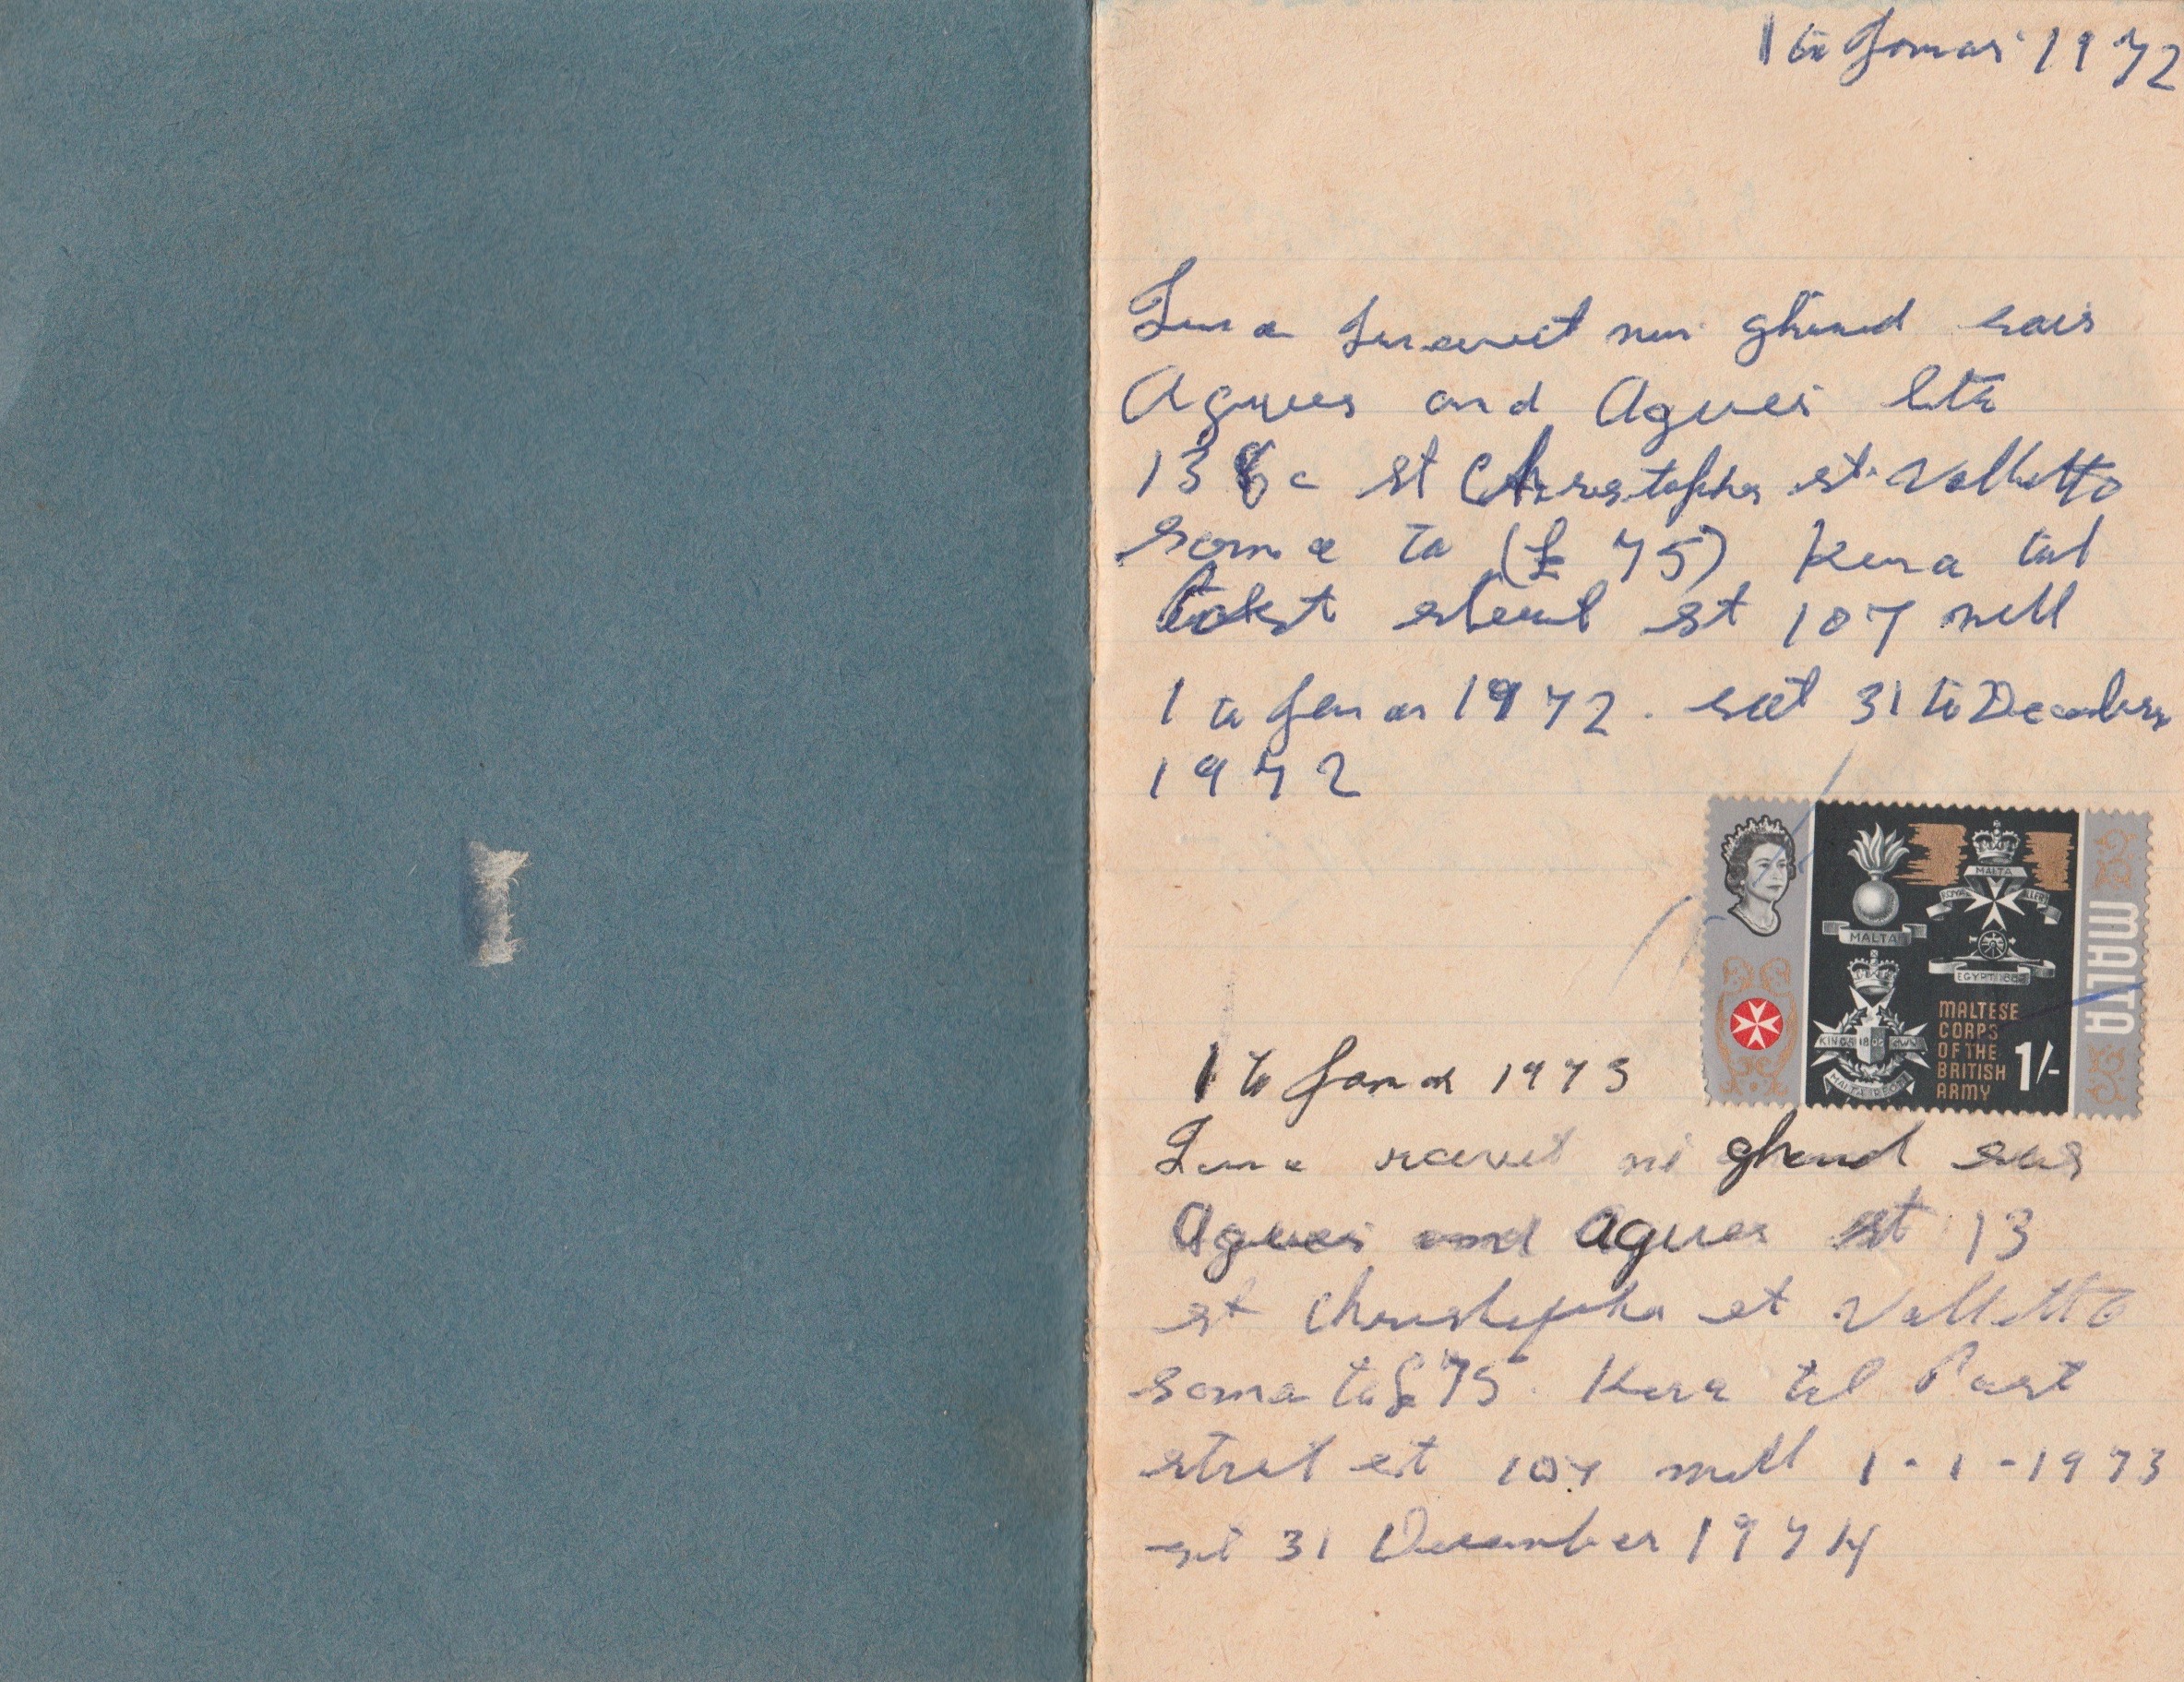 1 ta Jonuar 1972
Jena ircevect min ghand sais
Agius and Agius lta
13 c st Christopher st Valletta
soma ta (£ 75) Kera tal
st 107 mill
1 ta Jenar 1972. set 31 ta December
1972
MALTA
MALTA
EGYPT 1882
MALTESE
CORPS
OF THE
BRITISH
ARMY
1/-
MALTA
1 ta Janar 1973
Jena rcevet mi ghand sais
Agius and Agius st 13
st Christopher st Valletta
soma ta £75. Kera tal Part
stret st 107 mill 1-1-1973
set 31 December 1974